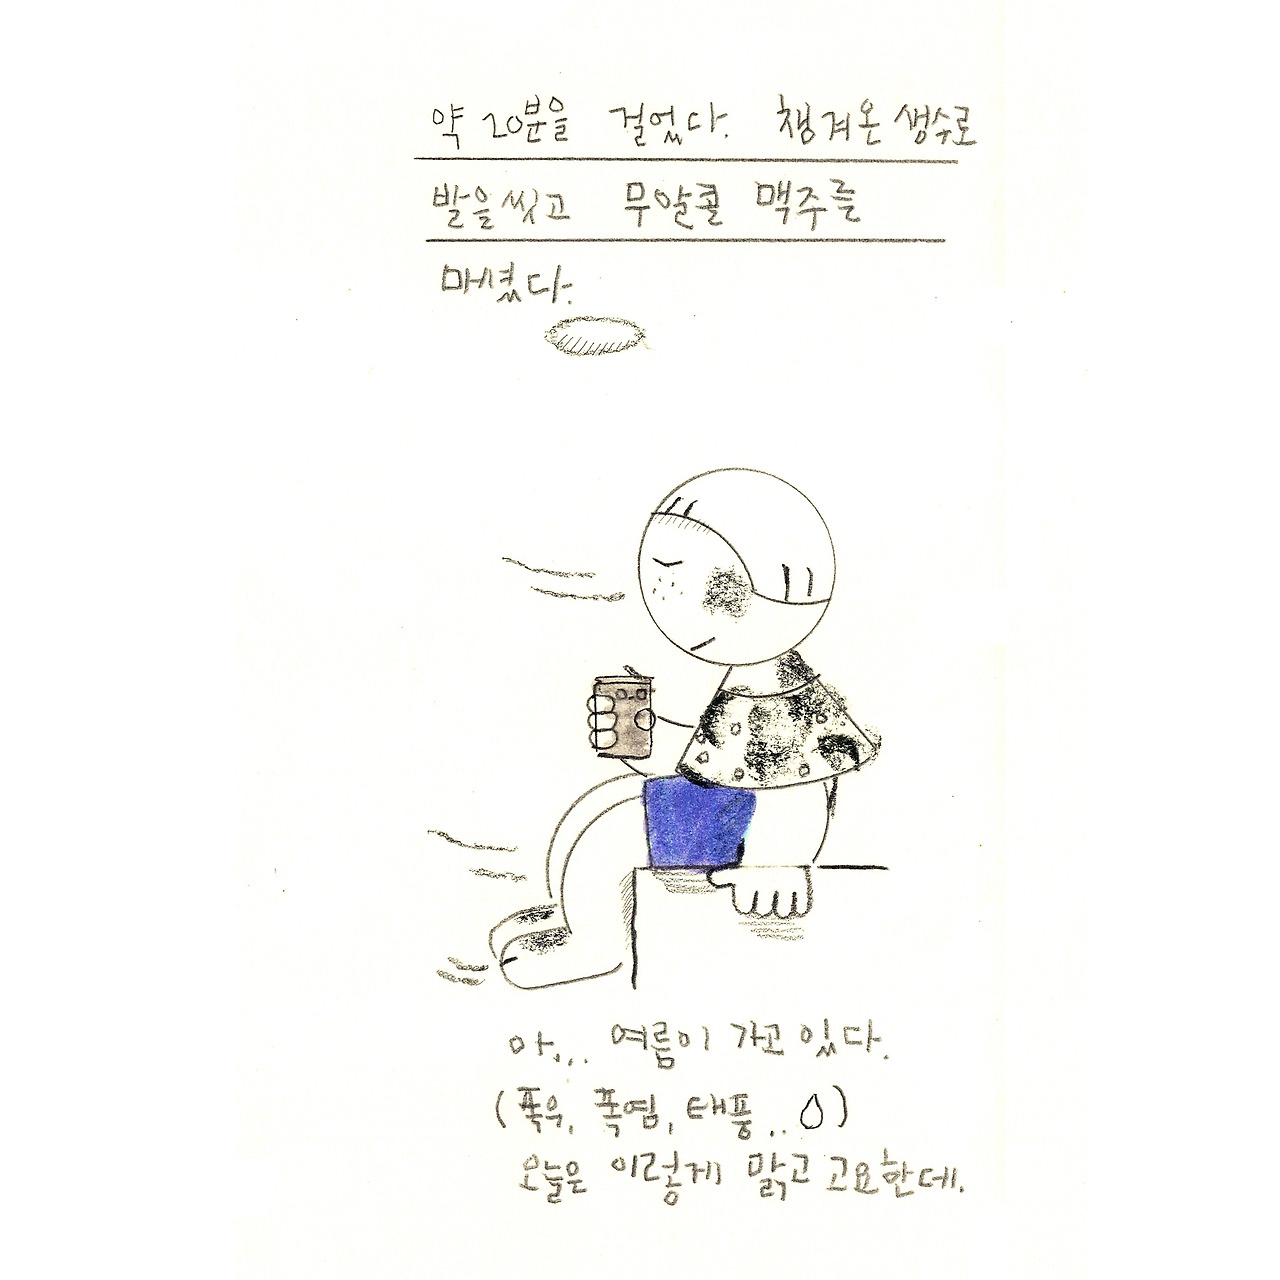 약 20분을 걸었다. 챙겨온 생수로
발을 씻고 무알콜 맥주를
마셨다.
아... 여름이 가고 있다.
(폭우, 폭염, 태풍...)
오늘은 이렇게 맑고 고요한데.